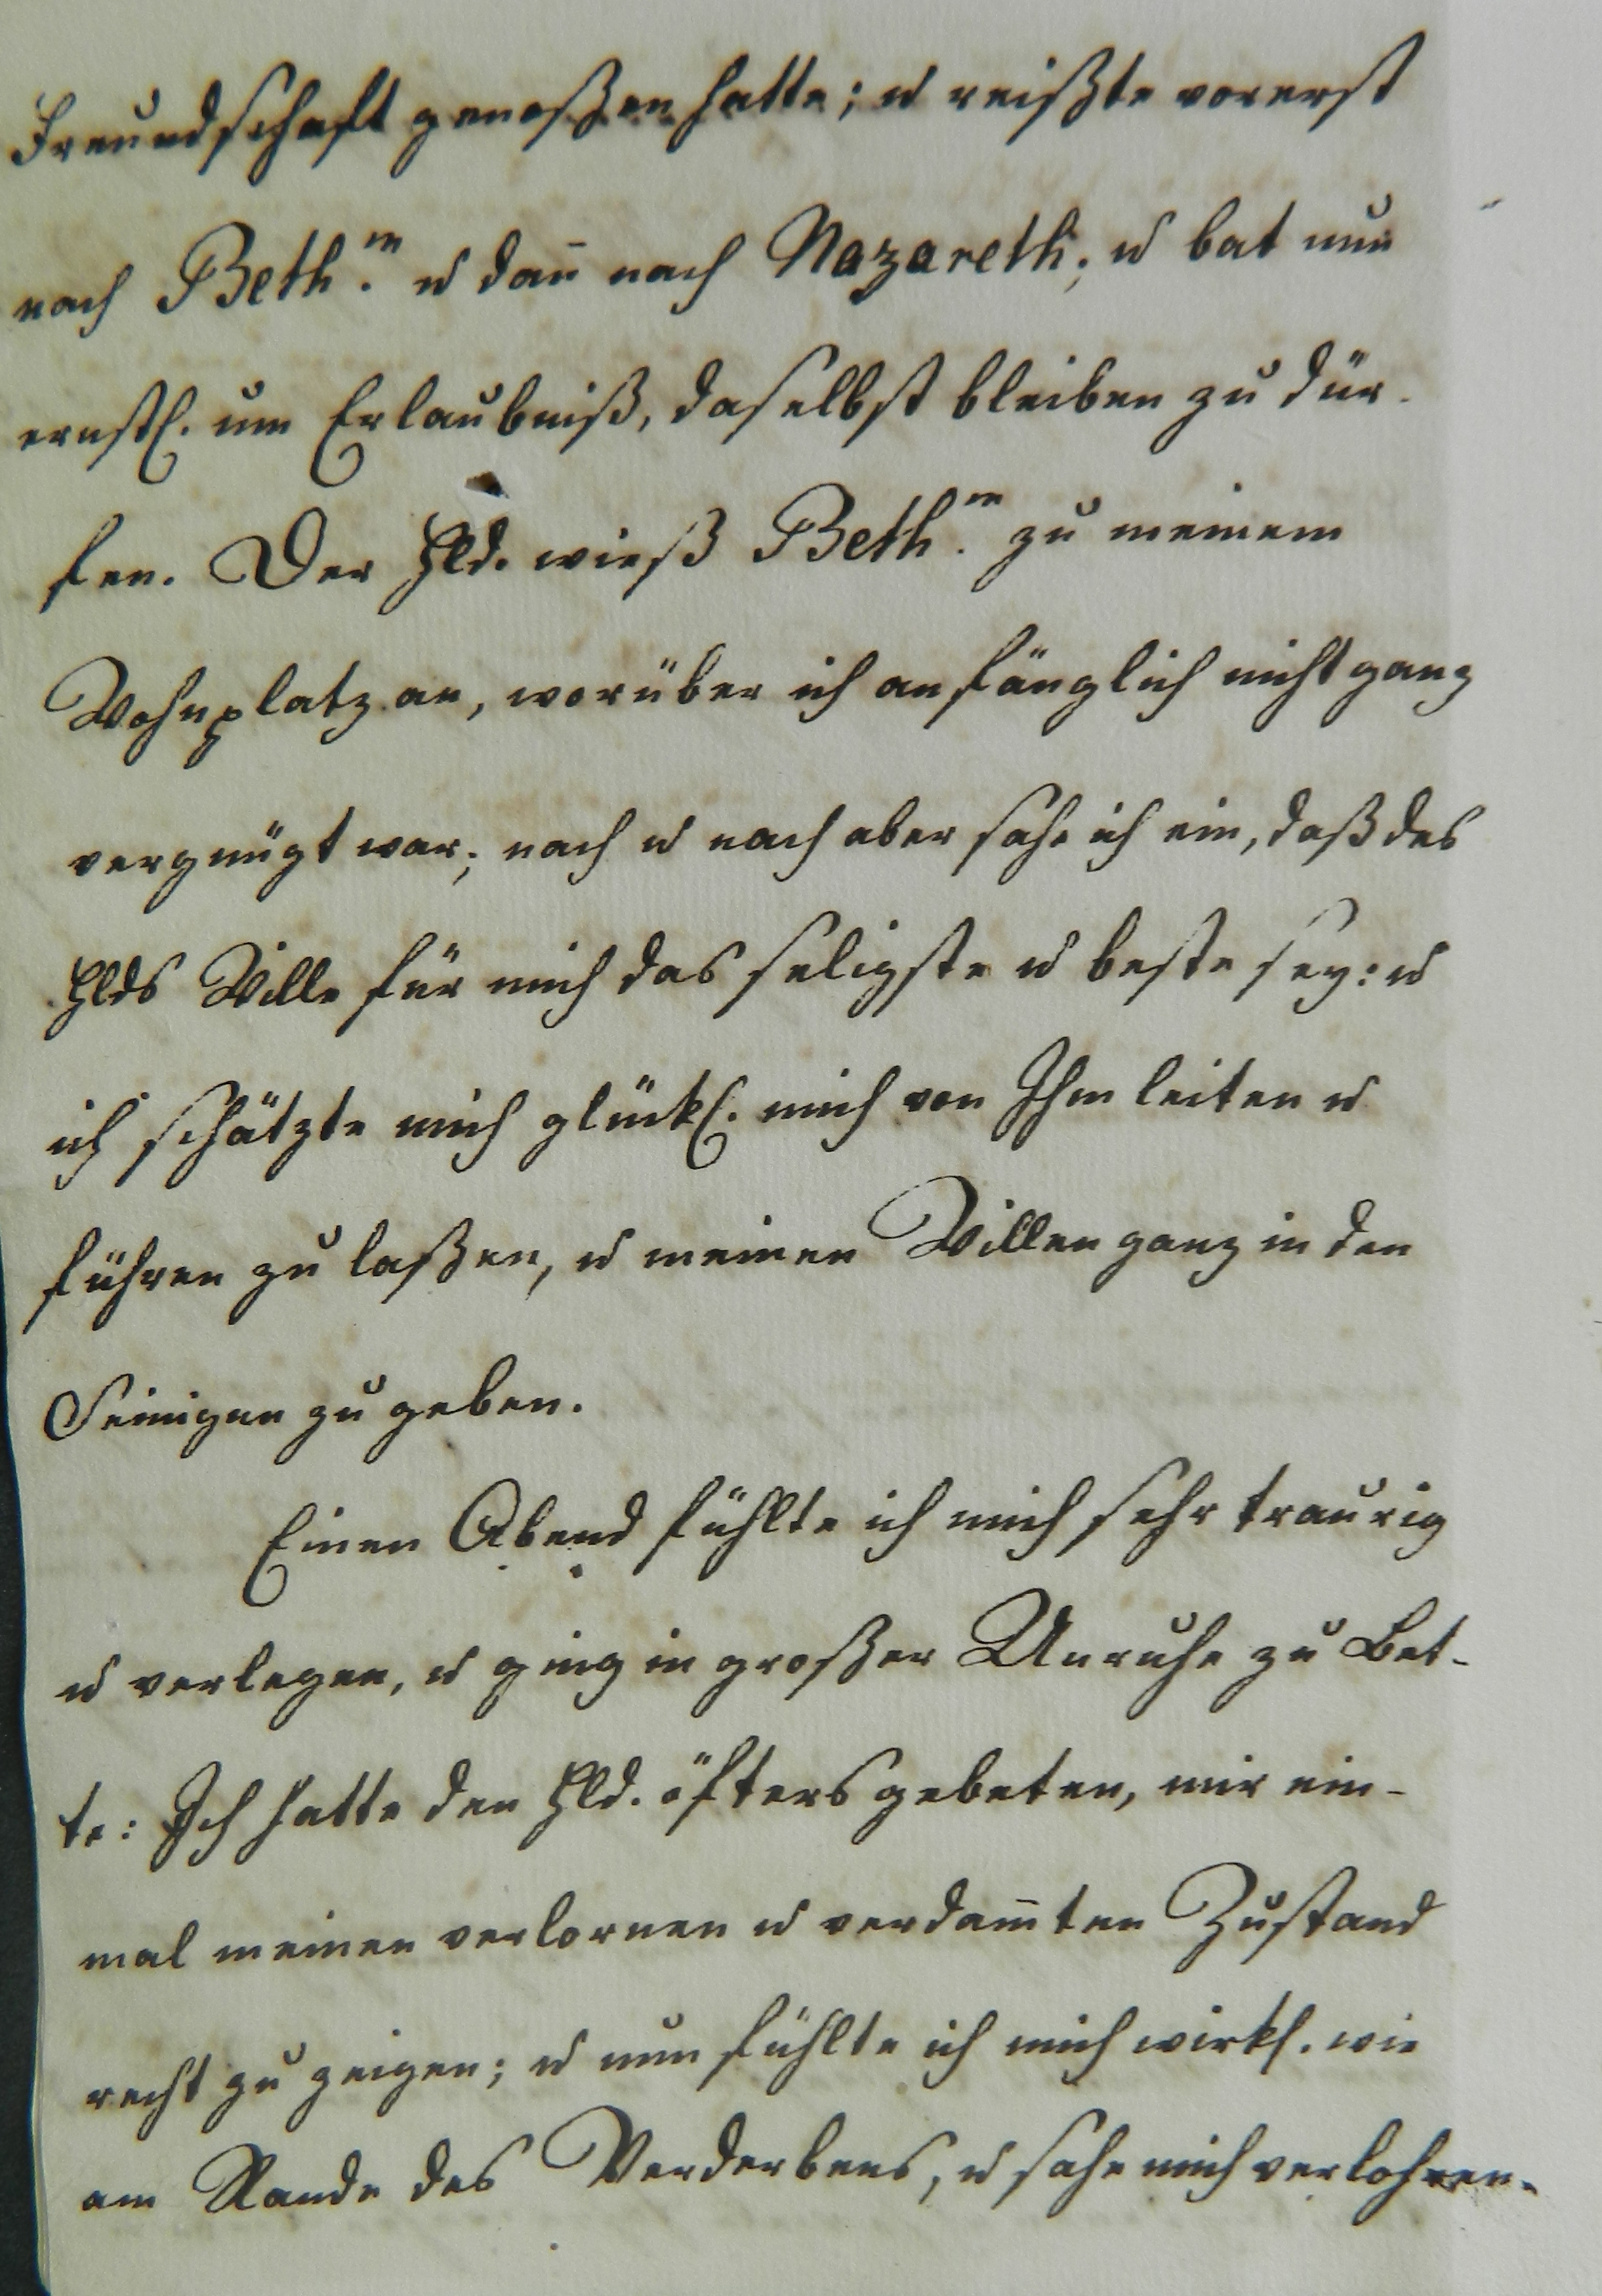 Freundschaft genoßen hatte; u reißte vorerst
nach Beth.m u dan̄ nach Nazareth; u bat nun
ernstl. um Erlaubniß, daselbst bleiben zu dür-
fen. Der Hld. wieß Beth.m zu meinem
Wohnplatz an, worüber ich anfänglich nicht ganz
vergnügt war; nach u nach aber sahe ich ein, daß des
Hlds Wille für mich das seligste u beste sey: u
ich schätzte mich glückl. mich von Ihm leiten u
führen zu laßen, u meinen Willen ganz in den
Seinigen zu geben.
Einen Abend fühlte ich mich sehr traurig
u verlegen, u ging in großer Unruhe zu Bet-
te: Ich hatte den Hld. öfters gebeten, mir ein-
mal meinen verlornen u verdam̄ten Zustand
recht zu zeigen; u nun fühlte ich mich wirkl. wie
am Rande des Verderbens, u sahe mich verlohren.